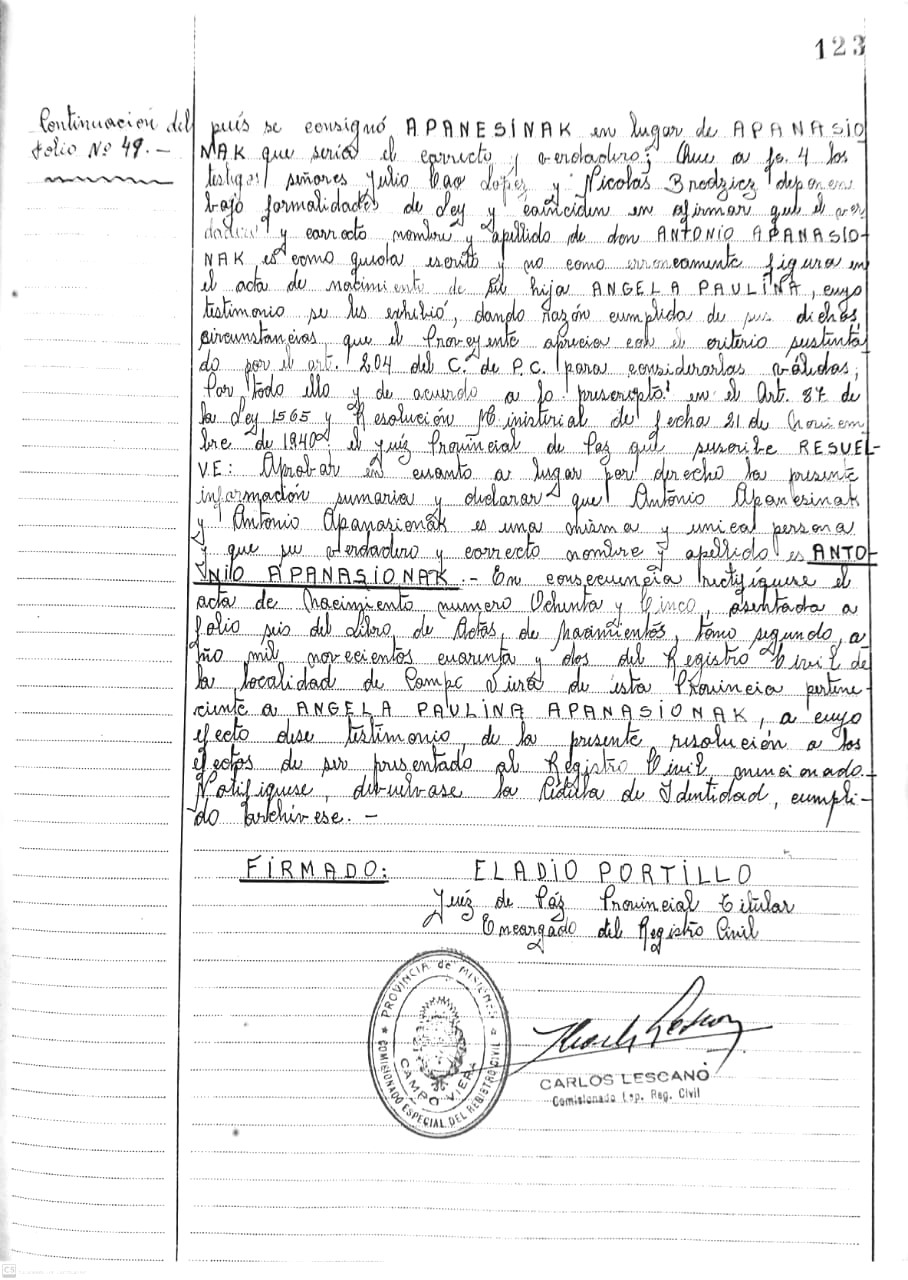 123
Continuación del
folio Nº 49.-
pués se consignó APANESINAK en lugar de APANASIO
NAK que sería el correcto y verdadero; Que a fs. 4 los
testigos señores Julio Cao Lopez y Nicolás Brodzicz deponen
bajo formalidades de Ley y coinciden en afirmar que el ver
dadero y correcto nombre y apellido de don ANTONIO APANASIO-
NAK es como queda escrito y no como erroneamente figura en
el acta de nacimiento de su hija ANGELA PAULINA, cuyo
testimonio se les exhibió, dando razón cumplida de sus dichos,
circunstancias, que el Proveyente aprecia con el criterio sustenta
do por el art. 204 del C. de P.C. para considerarlas válidas;
Por todo ello y de acuerdo a lo prescripto en el Art. 87 de
la Ley 1565 y Resolución Ministerial de fecha 21 de Noviem
bre de 1940 el Juéz Provincial de Paz que suscribe RESUEL-
VE: Aprobar en cuanto a lugar por derecho la presente
información sumaria y declarar que Antonio Apanesinak
y Antonio Apanasionak es una misma y unica persona
y que su verdadero y correcto nombre y apellido es ANTO-
NIO APANASIONAK.- En consecuencia rectifíquese el
acta de Nacimiento numero Ochenta y Cinco, asentada a
folio seis del Libro de Actas de Nacimientos, tomo segundo, a
ño mil novecientos cuarenta y dos del Registro Civil de
la localidad de Campo Viera de esta Provincia pertene-
ciente a ANGELA PAULINA APANASIONAK, a cuyo
efecto dese testimonio de la presente resolución a los
efectos de ser presentado al Registro Civil mencionado.-
Notifiquese, debuelvase la Cédula de Identidad, cumpli-
do archívese.-
FIRMADO: ELADIO PORTILLO
Juéz de Páz Provincial Titular
Encargado del Registro Civil
PROVINCIA de MISIONES
COMISIONADO ESPECIAL DEL REGISTRO CIVIL
CAMPO VIERA
CARLOS LESCANO
Comisionado Esp. Reg. Civil
CS